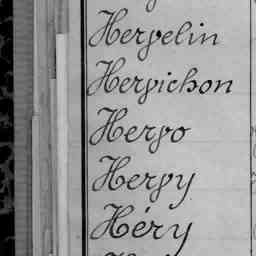 Hervelin
Hervichon
Hervo
Hervy
Héry